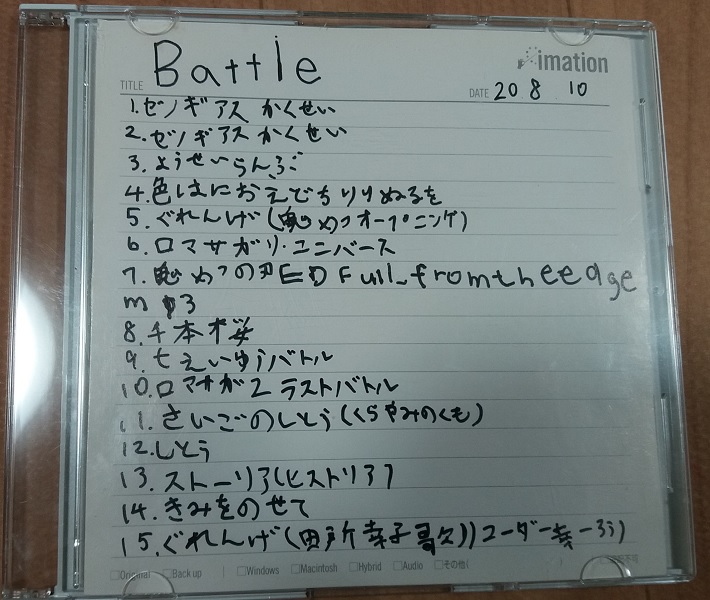 Battle
imation
TITLE
DATE 20 8 10
1. ゼノギアス かくせい
2. ゼノギアス かくせい
3. ようせいらんぶ
4. 色はにおえどちりりぬるを
5. ぐれんげ(鬼めつオープニング)
6. ロマサガリ・ユニバース
7. 鬼めつの刃ED Full_fromtheedge
m p3
8. 千本桜
9. 七えいゆうバトル
10. ロマサガ2 ラストバトル
11. さいごのしとう(くらやみのくも)
12. しとう
13. ストーリア(ヒストリア)
14. きみをのせて
15. ぐれんげ(田所
Original Back up Windows Macintosh Hybrid Audio その他(